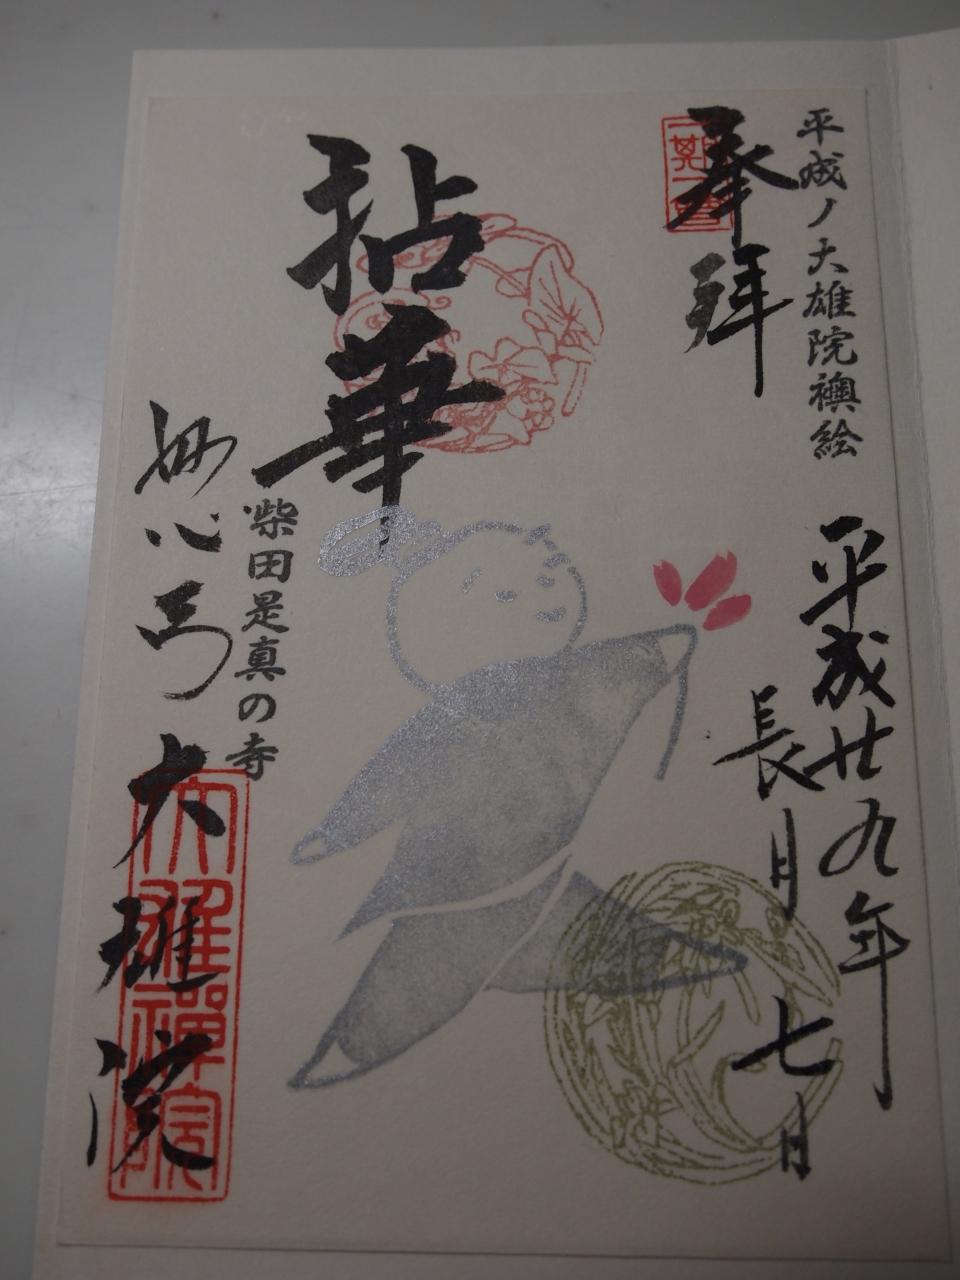 平成ノ大雄院襖絵
奉拝
一期一會
平成廿九年
長月七日
拈華
柴田是真の寺
妙心寺 大雄院
大雄禅院